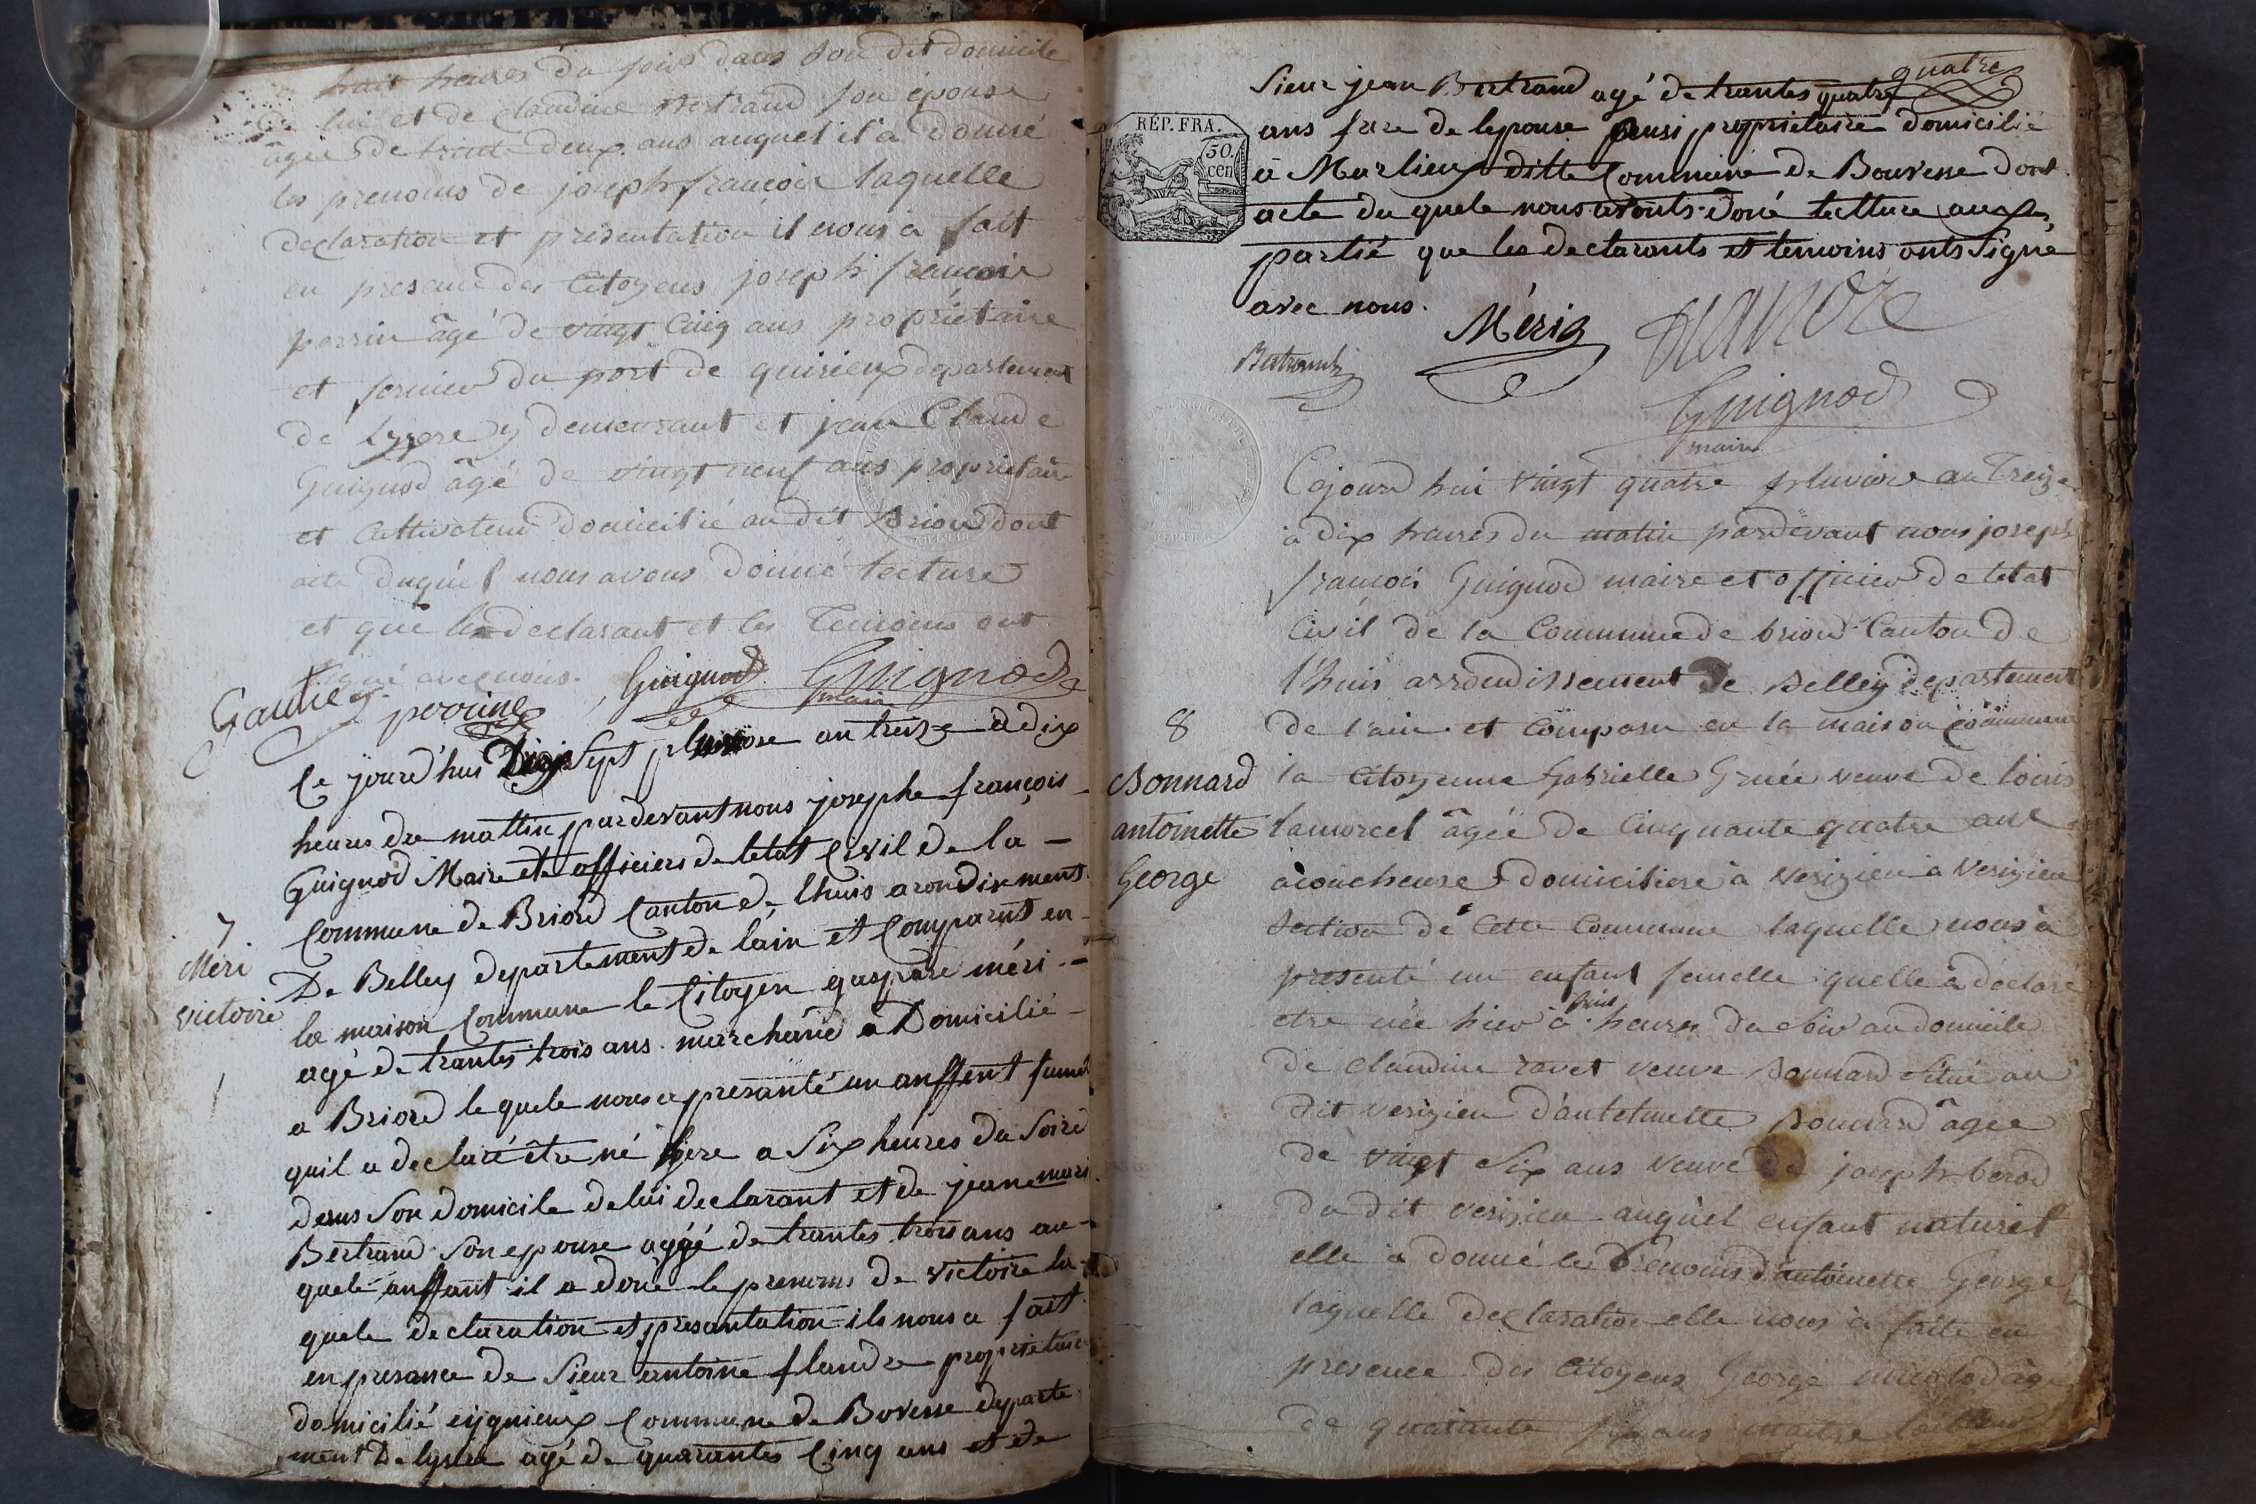 huit heures du soir dans son dit domicile
de lui et de claudine Bertrand son épouse
âgée de trente deux ans auquel il a donné
les prenoms de joseph françois laquelle
declaration et présentation il nous a fait
en presence des Citoyens joseph françois
perrin âgé de vingt Cinq ans propriétaire
et fermier du port de quirieux departement
de lyzere y demeurant et jean Claude
Guignod âgé de vingt neuf ans proprietaire
et Cultivateur domicilié au dit Briord dont
acte duquel nous avons donné lecture
et que le declarant et les Temoins ont
signé avec nous.
Guignod Guignod
maire
Gautier perrin
Ce jourd'hui Dix Sept pluviose an treize a dix
heures du mattin pardevant nous josephe françois
Guignod Maire et officiers de letat Civil de la
Commune de Briord Canton de lhuis arondisment
7
Méri
victoire
De Belley departement de lain et Comparut en
la maison Commune le Citoyen gaspare méri
agé de trantes trois ans marchand a Domicilié
a Briord le quele nous a presanté un anffent fumel
quil a declaré être né hiere a Six heures du Soire
dens Son domicile de lui declarant et de jeane mari
Bertrand Son epouse aggé de trantes trois ans au
quele anffant il a doné le prenoms de victoire la
quele declaration et presantation ils nous a fait
en presance de Sieur antoine flandre proprietaire
domicilié eygnieux Commune de Bovesse departe
ment De lysere agé de quarantes Cinq ans et de
quatre
Sieur jean Bertrand agé de trantes quatre
ans frere de lepouse ausi proprietaire domicilié
RÉP. FRA.
50.
cen
à Marlieux ditte Commune de Bouvesse dont
acte du quele nous avonts doné lectture aux
partié que les declarants et temoins onts Signé
avec nous.
Mériq
Bertrand
Guignod
maire
Cejourd hui vingt quatre pluviose an Treize
à dix heures du matin pardevant nous joseph
françois Guignod maire et officier de letat
Civil de la Commune de briord Canton de
l'huis arrondissement de Belley departement
8
Bonnard
antoinette
George
de l'ain et comparu en la maison commune
la Citoyenne Gabrielle Gruée veuve de louis
lamorcel âgée de Cinquante quatre ans
acoucheuse domiciliere à Verizieu à Verizieu
Section de Cette Commune laquelle nous à
presenté un enfant femelle quelle à declaré
huit
etre née hier à heures du soir au domicile
de Claudine ravet veuve Bonnard situé au
dit verizieu d'antoinette Bonnard âgée
de vingt Six ans veuve de joseph berod
du dit verizieu auquel enfant naturel
elle à donné les Prénoms d'antoinette George
laquelle declaration elle nous à faite en
presence des Citoyens George
de quarante Six ans maitre tailleur